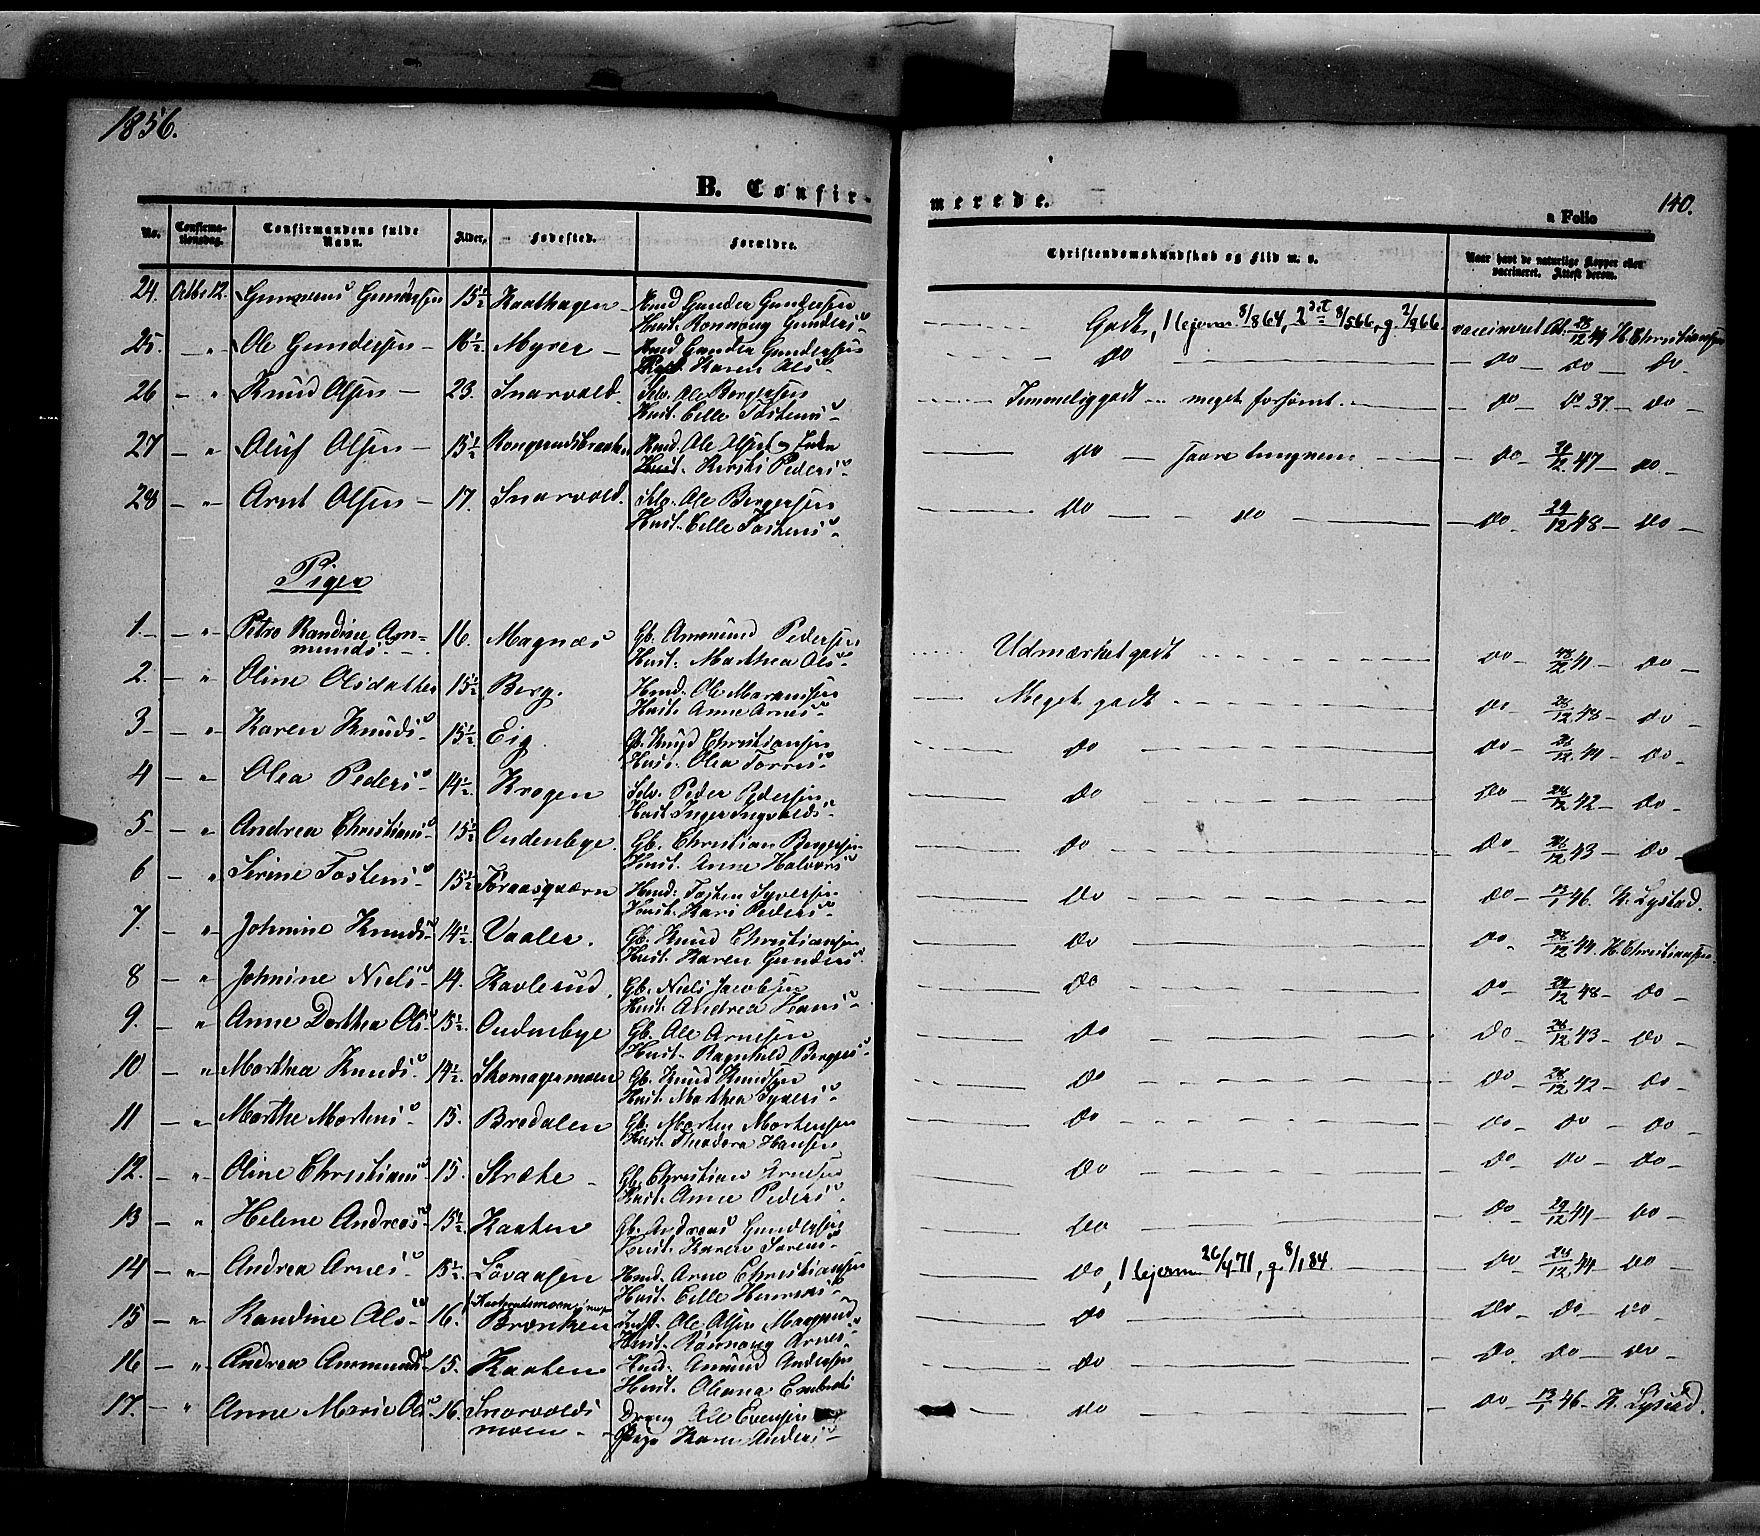 1856.
B. Confir-
merede.
a Folio 140.
No. Confirma-tionsdag. Confirmandens fulde Navn. Alder. Fødested. Forældre.
Christendomskundskab og Flid m. v.
Naar havt de naturlige Kopper eller vaccineret. Attest derom.
24. Octbr 12. Gundersen 15½ Kaathagen Hmd Gunder Gundersen
Hust. Rønnoug Gunders
Godt, 1 lejerm. 8/8 64, 2det 8/5 66, g. 2/9 66. vaccineret At. 28/12 44 H. Christiansen
25. – " Ole Gundersen – 16½ Myrer – Hmd Gunder Gundersen
Karen Ols
do – do – do – do –
26 – " Knud Olsen – 23. Snarvold. Selv. Ole Bergersen
Hust. Eille Tostens
Temmelig godt – meget forsømt. – do – do 37. – do –
27 – " Oluf Olsen – 15½ Hmd. Ole Olsen
Hust. Kersti Peders
do – saare tungnem – do – 47 – do –
28 – " Arnt Olsen – 17. Snarvold. Selv. Ole Bergersen
Hust. Eille Tostens
do – do – do – 29/12 48 – do –
Piger
1. – " Petra Randine Am=
munds. 16. Magnæs Gb. Ammund Pedersen
Hust. Marthea Ols
Udmærket godt do – 28/12 41 – do –
2. – " Oline Olsdatter 15½ Berg. Hmd. Ole
Hust. Anne Arnes
Meget godt do – 28/12 48 – do –
3 – " Karen Knuds 15½ Eig. Gb. Knud Christiansen
Hust. Olea Torres
do do – 28/12 44 – do –
4 – " Olea Peders 14½ Krogen Selv. Peder Pedersen
Hust. Inger Ingvalds
do do – 28/12 42 – do –
5 – " Andrea Christians 15½ Oudenbye. Gb. Christian Bergersen
Hust. Anne Halvors
do do – 28/12 43 – do –
6 – " Serine Tostens 15½ Toraasqværn Hmd: Tosten Syversen
Hust. Kari Peders
do do – 13/1 46. K. Lystad.
7. – " Johnine Knuds 14½ Vaaler. Gb. Knud Christiansen
Hust. Karen Gunders
do do – 28/12 44 H. Christiansen.
8 – " Johnine Niels 14. Kavlerud. Gb. Niels Jacobsen
Hust. Andrea Hans
do do – 28/12 48 – do –
9. – " Anne Dorthea Ols 15½ Oudenbye Gb. Ole Arnesen
Hust. Ragnhild Bergers
do do – 28/12 43 – do –
10 – " Marthea Knuds 14½ Skomagermoen Gb. Knud Knudsen
Hust. Marthea Syvers
do do – 28/12 42 – do –
11 – " Marthe Mortens 15. Bredalen Gb. Morten Mortensen
Hust. Theodora Hansen
do do – do – do –
12. – " Oline Christians 15. Stræte – Gb. Christian Arnesen
Hust. Anne Peders
do do – do – do –
13 – " Helene Andreas 15½ Kaaten Gb. Andreas Gundersen
Hust. Karen Sørens
do do – 29/12 44 – do –
14 – " Andrea Arnes 15½ Løvaasen Hmd. Arne Christiansen
Hust. Eille
do, 1 lejerm. 26/4 71, g. 8/1 84. do – 28/12 44 – do
15 – " Randine Ols 16. Brænken Ole Olsen
Hust. Rønnoug Arnes
do do – do – do
16 – " Andrea Ammunds 15. Kaaten Hmd. Amund Andersen
Hust. Oleana Emberts
do do – do – do –
17. – " Anne Marie Ols 16. Snarvolds
moen – Dreng Ole Evensen
Pige Karen Anders
do do – 13/1 46 – K. Lystad.